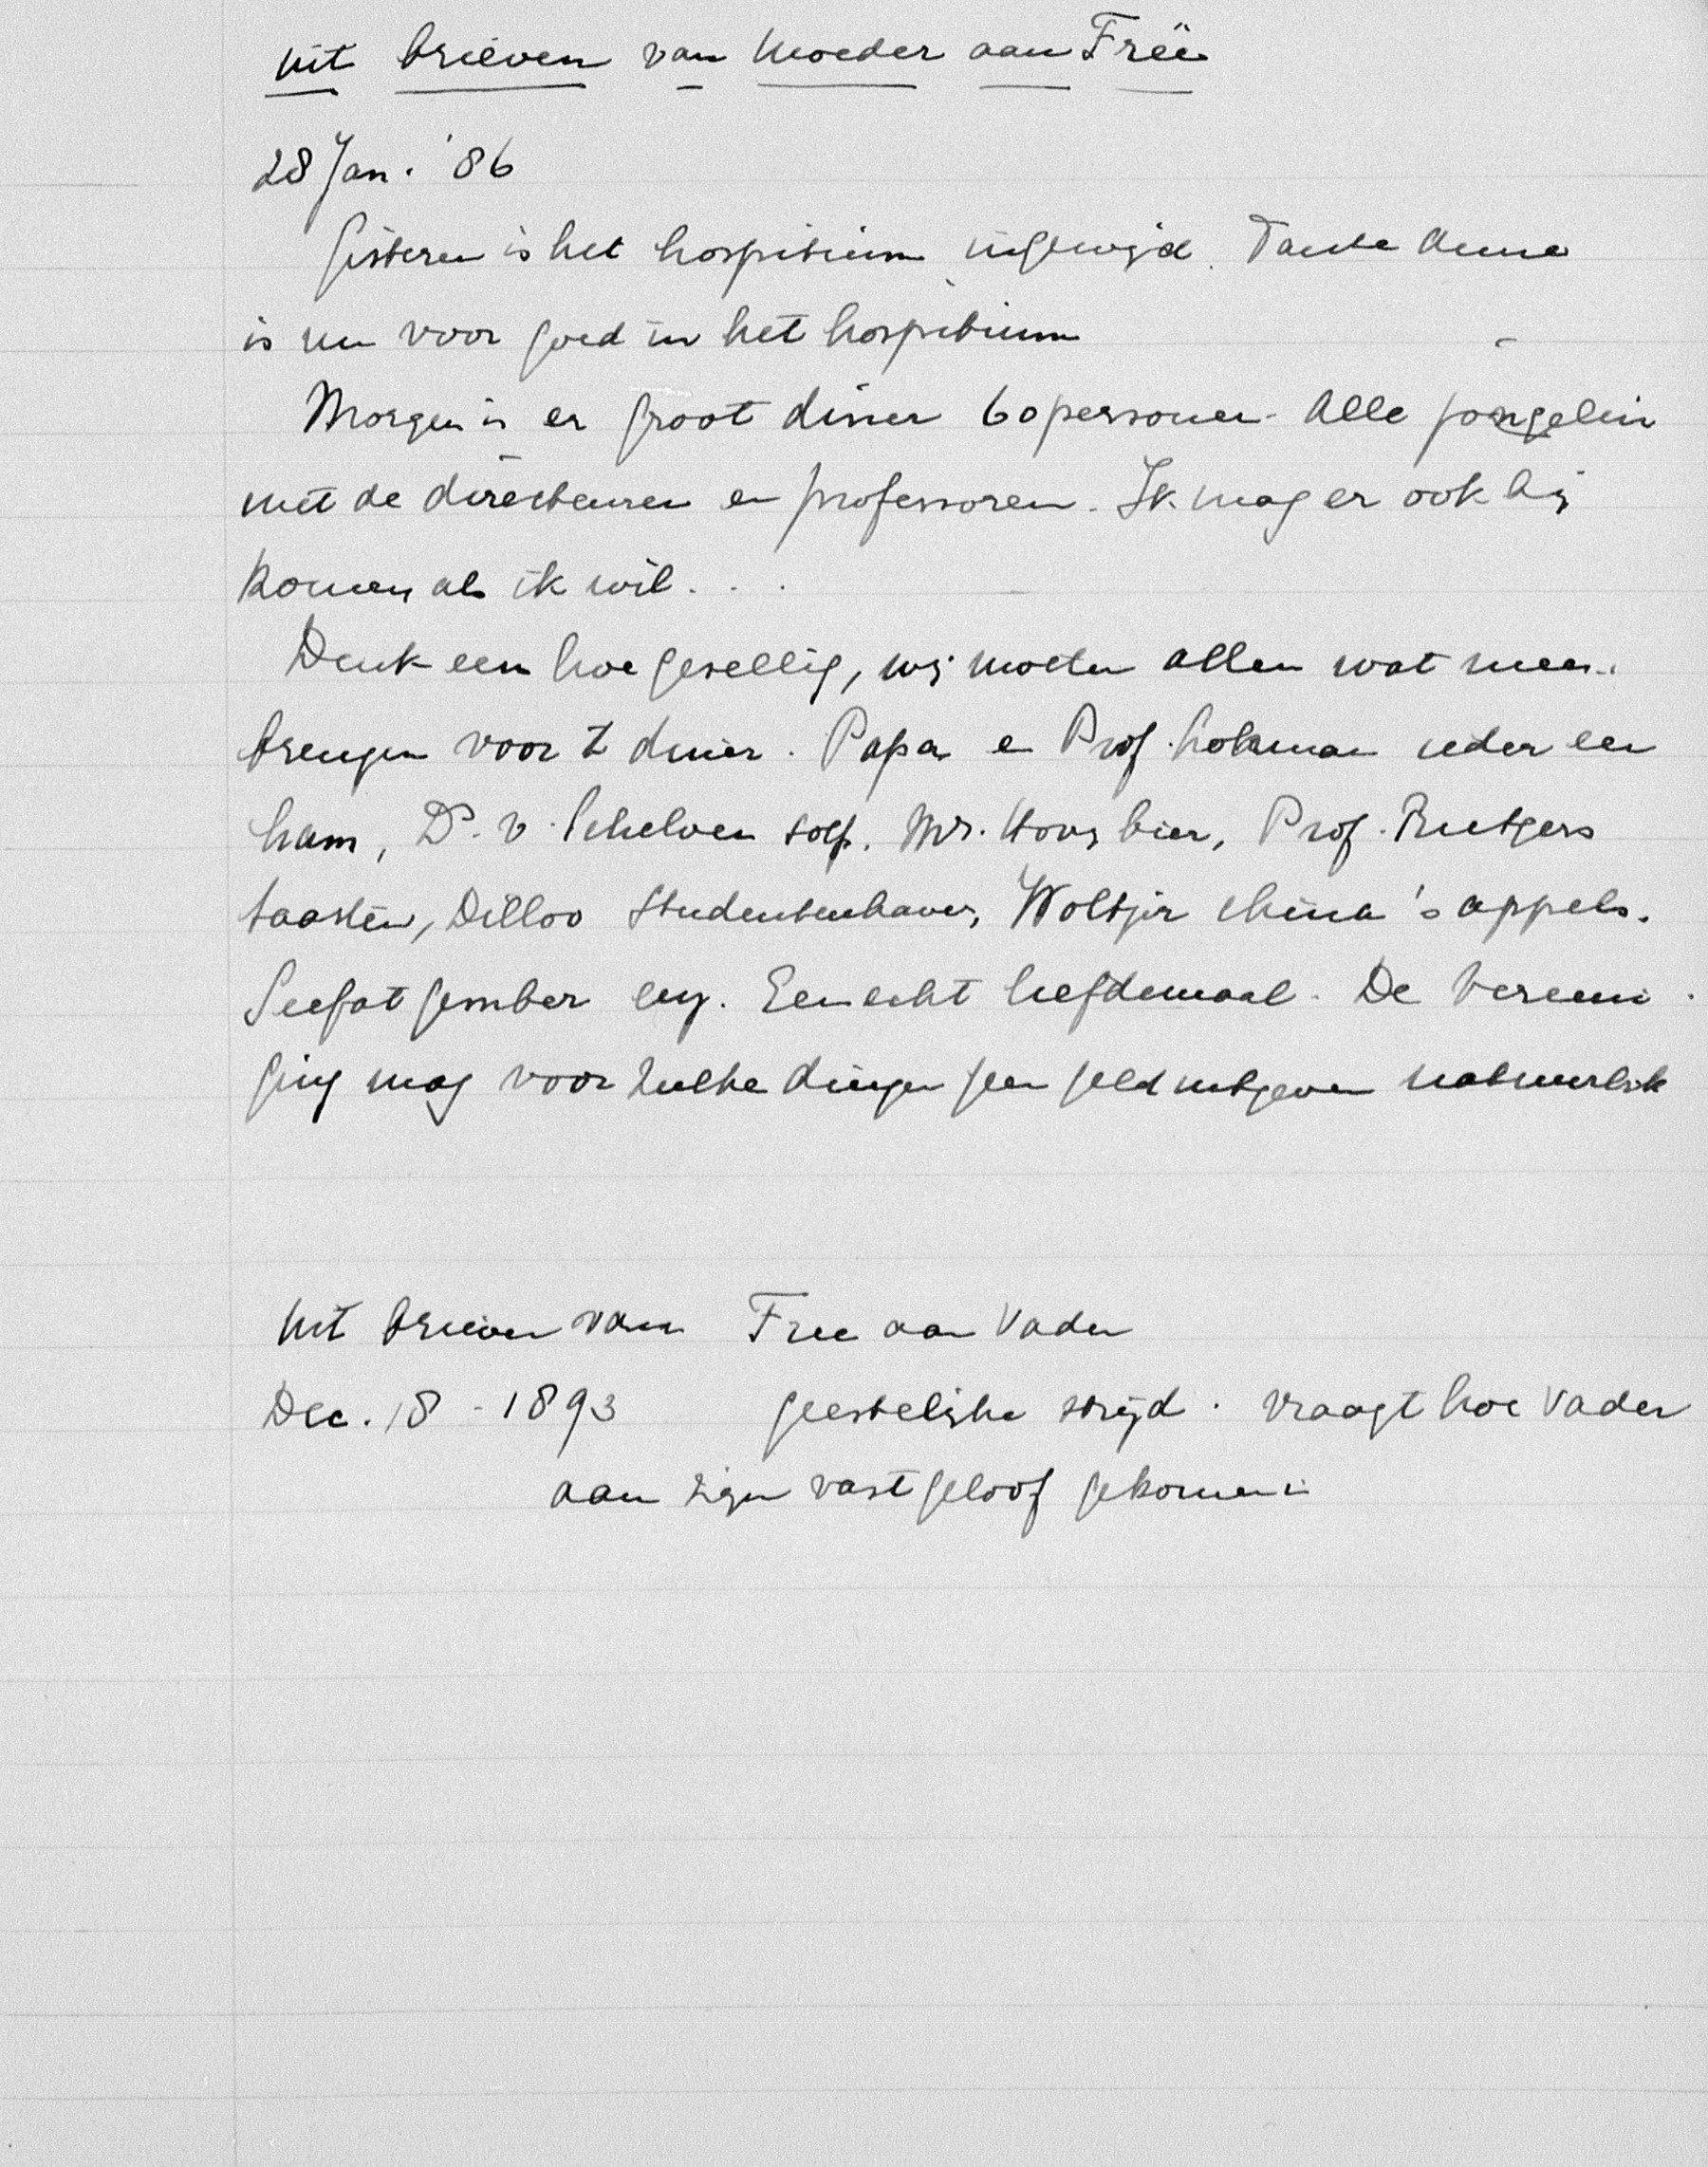 Uit brieven van Moeder aan Freê
28 Jan. '86
Gisteren is het hospitium ingewijd. Tante Anna
is nu voor goed in het hospitium
Morgen is er groot diner 60 personen. Alle jongelui
met de directeuren en professoren. Ik mag er ook bij
komen als ik wil. . .
Denk een hoe gesellig, wij moeten allen wat mee.
brengen voor 't diner. Papa en Prof. Lohman ieder een
ham, Ds. v. Schelven soep. Mr. Hovy bier, Prof. Rutgers
taarten, Dilloo Studentenhaver, Woltjer china's appels.
Seefat gember enz. Een echt liefdemaal. De Vereeni.
ging mag voor zulke dingen geen geld uitgeven natuurlik
Uit brieven van Free aan Vader
Dec. 18 - 1893 geestelijke strijd. vraagt hoe Vader
aan zijn vast geloof gekomen is